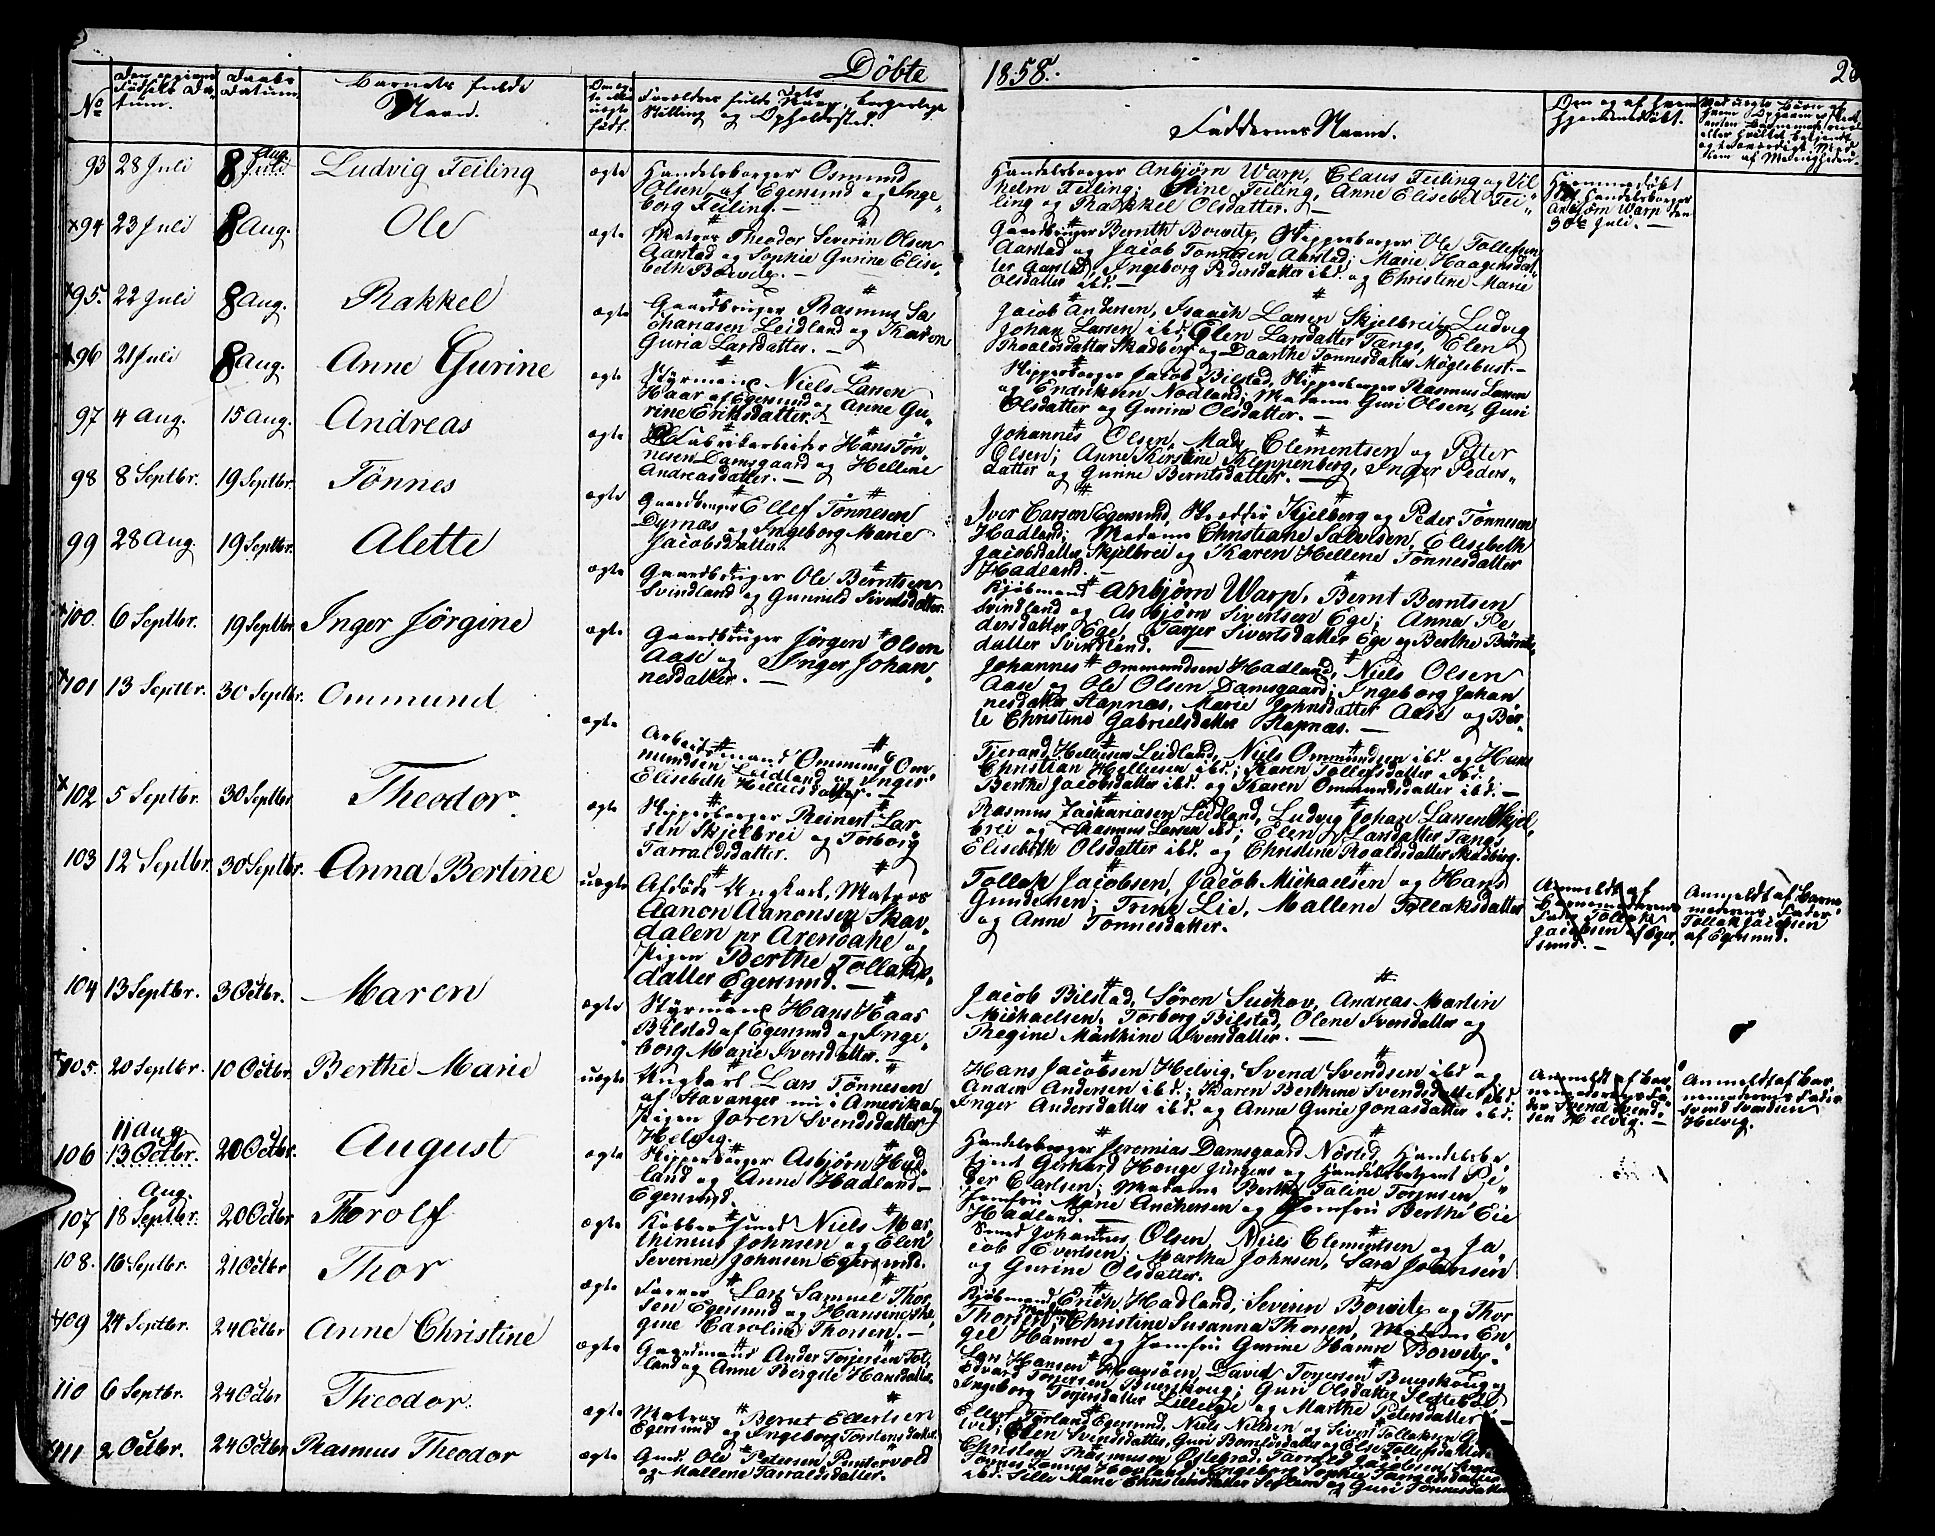 Døbte 1858.
No
Barnets fulde Navn.
Faddernes Navne.
93 28 Juli 8 Aug. Juli Ludvig Feiling ægte Handelsborger Osmund
Olsen af Egersund og Inge-
borg Feiling. —
Handelsborger Anbjørn Warp, Claus Feiling og Vil-
helm Feiling; Stine Feiling, Anne Elisabet Fei-
ling og Rakkel Olsdatter. —
Hjemmedøbt
af Handelsborger
Anbjørn Warp den
30te Juli. —
94 23 Juli 8 Aug. Ole ægte Matros Theodor Severin Olsen
Aarstad og Sophie Gurine Elise-
beth Bowitz. —
Gaardbruger Bernth Bowitz, Skipperborger Ole Tollefsen
Aarstad og Jacob Tønnesen Aarstad; Marie Haagensdat-
ter Aarstad, Ingeborg Pedersdatter ibd. og Christine Marie
Olsdatter ibd. —
95. 22 Juli 8 Aug. Rakkel ægte Gaardbruger Rasmus Za
chariasen Leidland og Karen
Guria Larsdatter. —
Jacob Andersen, Isaach Larsen Skjelbrei, Ludvig
Johan Larsen ibd; Elen Larsdatter Tængs, Elen
Roaldsdatter Skadberg og Daarthe Tønnesdatter Møglebust. —
96 21 Juli 8 Aug. Anne Gurine ægte Styrmand Niels Larsen
Haar af Egersund og Anne Gu-
rine Eriksdatter. —
Skipperborger Jacob Bilstad, Skipperborger Rasmus Larsen
og Endriksen Nodland; Madame Guri Olsen, Guri
Olsdatter og Gurine Olsdatter. —
97 4 Aug. 15 Aug. Andreas ægte Fabrikarbeider Hans Tøn-
nesen Damsgaard og Hellene
Andreasdatter. —
Johannes Olsen, Mads Clementsen og Petter
Olsen; Anne Kirstine Kleppenberg, Inger Peders-
datter og Gurine Berntsdatter. —
98 8 Septbr. 19 Septbr. Tønnes ægte Gaardbruger Ellef Tønnesen
Dyrnæs og Ingeborg Marie
Jacobsdatter.
Iver Carsen Egersund, Kjelberg og Peder Tønnesen
Hadland; Madame Christiane Salvesen, Elisebeth
Jacobsdatter Skjelbrei og Karen Hellene Tønnesdatter
Hadland. —
99 28 Aug. 19 Septbr. Alette ægte Gaardbruger Ole Berntsen
Svindland og Gunnild Sivertsdatter.
Kjøbmand Anbjørn Warp, Bernt Berntsen
Svindland og Asbjørn Sivertsen Ege; Anna Pe
dersdatter Ege, Tarjer Sivertsdatter Ege og Berthe Bernts-
datter Svindland. —
100. 6 Septbr. 19 Septbr. Inger Jørgine ægte Gaardbruger Jørgen Olsen
Aase og Inger Johan-
nesdatter. —
Johannes Ommundsen Hadland, Niels Olsen
Aase og Ole Olsen Damsgaard; Ingeborg Johan
nesdatter Stapnæs, Marie Johnsdatter Aase og Ber-
te Christine Gabrielsdatter Stapnæs. —
101 13 Septbr. 30 Septbr. Ommund ægte Arbeidsmand Ommund Om-
mundsen Leidland og Inger
Elisebeth Helliesdatter. —
Tjerand Helliesen Leidland, Niels Ommundsen ibd. og Hans
Christian Helliesen ibd.; Karen Tollefsdatter ibd.,
Berthe Jacobsdatter ibd. og Karen Ommundsdatter ibd. —
102 5 Septbr. 30 Septbr. Theodor. ægte Skipperborger Reinert Lar-
sen Skjelbrei og Torborg
Tarraldsdatter.
Rasmus Zachariasen Leidland, Ludvig Johan Larsen Skjel-
brei og Rasmus Larsen ibd; Elen Larsdatter Tængs,
Elisebeth Olsdatter ibd. og Christine Roaldsdatter Skadberg.
103 12 Septbr. 30 Septbr. Anna Bertine uægte Afdøde Ungkarl, Matros
Aanon Aanonsen Skav-
dalen pr Arendahl og
Pigen Berthe Tollaks-
datter Egersund. —
Tollak Jacobsen, Jacob Michaelsen og Hans
Gundersen; Trine Lie, Mallene Tollaksdatter
og Anne Tønnesdatter.
Anmeldt af
Barnemoderens
Fader Tollak
Jacobsen af Eger-
sund. —
Anmeldt af Barne-
moderens Fader
Tollak Jacobsen
af Egersund.
104 13 Septbr. 3 Octbr. Maren ægte Styrmand Hans Haas
Bilstad af Egersund og Inge-
borg Marie Iversdatter. —
Jacob Bilstad, Søren Suckow, Andreas Martin
Michaelsen; Torborg Bilstad, Olene Iversdatter og
Regine Marthine Iversdatter. —
105. 20 Septbr. 10 Octbr. Berthe Marie uægte Ungkarl Lars Tønnesen
af Stavanger nu i Amerika og
Pigen Joren Svendsdatter
Helvig.
Hans Jacobsen Helvig, Svend Svendsen ibd og
Anders Andersen ibd.; Karen Berthine Svendsdatter ibd.
Inger Andersdatter ibd. og Anne Gurie Jonasdatter ibd.
Anmeldt af Bar-
nemoderens Fa-
der Svend Svend-
sen Helvig. —
Anmeldt af Bar-
nemoderens Fader
Svend Svendsen
Helvig.
106 11 Aug. 13 Octbr. 20 Octbr. August ægte Skipperborger Asbjørn Had-
land og Anne Hadland —
Egersund.
Handelsborger Jeremias Damsgaard Nøsted, Handelsbe-
tjent Gerhard Hauge Jürgens og Handelsbetjent Pe-
der Carlsen; Madame Berthe Taline Torjusen
Jomfru Marie Anchersen og Jomfru Berthe Eie
Hadland. —
107 Aug. 18 Septbr. 20 Octbr Thorolf ægte Kobbersmed Niels Mar-
thinius Johnsen og Elen
Severine Johnsen Egersund.
Smed Johannes Olsen, Niels Clementsen og Ja-
cob Evertsen; Martha Johnsen, Sara Johnsen
og Gurine Olsdatter.
108. 16 Septbr. 21 Octbr Thor ægte Farver Lars Samuel Thor-
sen Egersund og Hansine Re-
gine Caroline Thorsen. —
Kjøbmand Erich Hadland, Severin Bowitz og Thor
Thorsen; Madame Christine Susanna Thorsen, Madame En-
gel Hamre og Jomfru Gurine Hamre Bowitz.
109 24 Septbr. 24 Octbr Anne Christine ægte Gaardmand Ander Torjersen Tot-
land og Anne Bergite Hansdatter.
Lars Hansen Havsøen, David Torjersen Buepskoug og
Edvard Torjersen Buepskoug; Guri Olsdatter Slettebø
Ingeborg Torjersdatter Lilleege og Marthe Petersdatter. —
110 6 Septbr. 24 Octbr Theodor. ægte Matros Bernt Ellertsen
Egersund og Ingeborg Torstensdatter.
Ellert Tørland Egersund, Niels Nilsen og Sivert Tollaksen
Elen Svendsdatter, Guri og Else Tollefsdatter
111 2 Octbr. 24 Octbr Rasmus Theodor ægte Gmd. Ole Petersen Puntervold
og Mallene Tarraldsdatter.
Christen Rasmussen Øglebrød, Tarrald Jacobsen
Tønnes Tønnes Hovland; Ingeborg Sophie Tængesdatter
ibd. Sille Marie Christensdatter og Guri Tønnesdatter